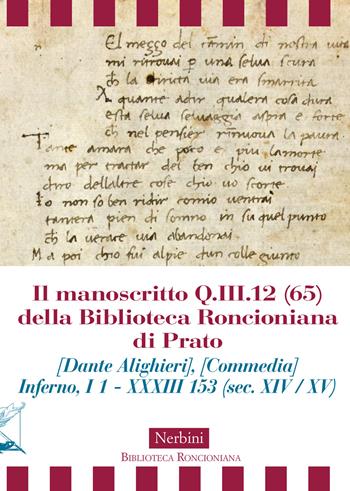 El meçço del camin di nostra vita
mi ritrouai p una selua scura
ch la diricta uia era smarrita
A quante adir qualera cosa dura
esta selua seluaggia aspra e forte
ch nel pensier rinnuoua la paura
Tante amara che poco e piu lamorte
ma per tractar del ben chio ui trouai
diro dellaltre cose chio uo scorte
Io non so ben ridir comio uentrai
tantera pien di sonno in su quel punto
ch la uerace uia abandonai
Ma poi chio fui alpie dun colle giunto
Il manoscritto Q.III.12 (65)
della Biblioteca Roncioniana
di Prato
[Dante Alighieri], [Commedia]
Inferno, I 1 - XXXIII 153 (sec. XIV / XV)
Nerbini
BIBLIOTECA RONCIONIANA